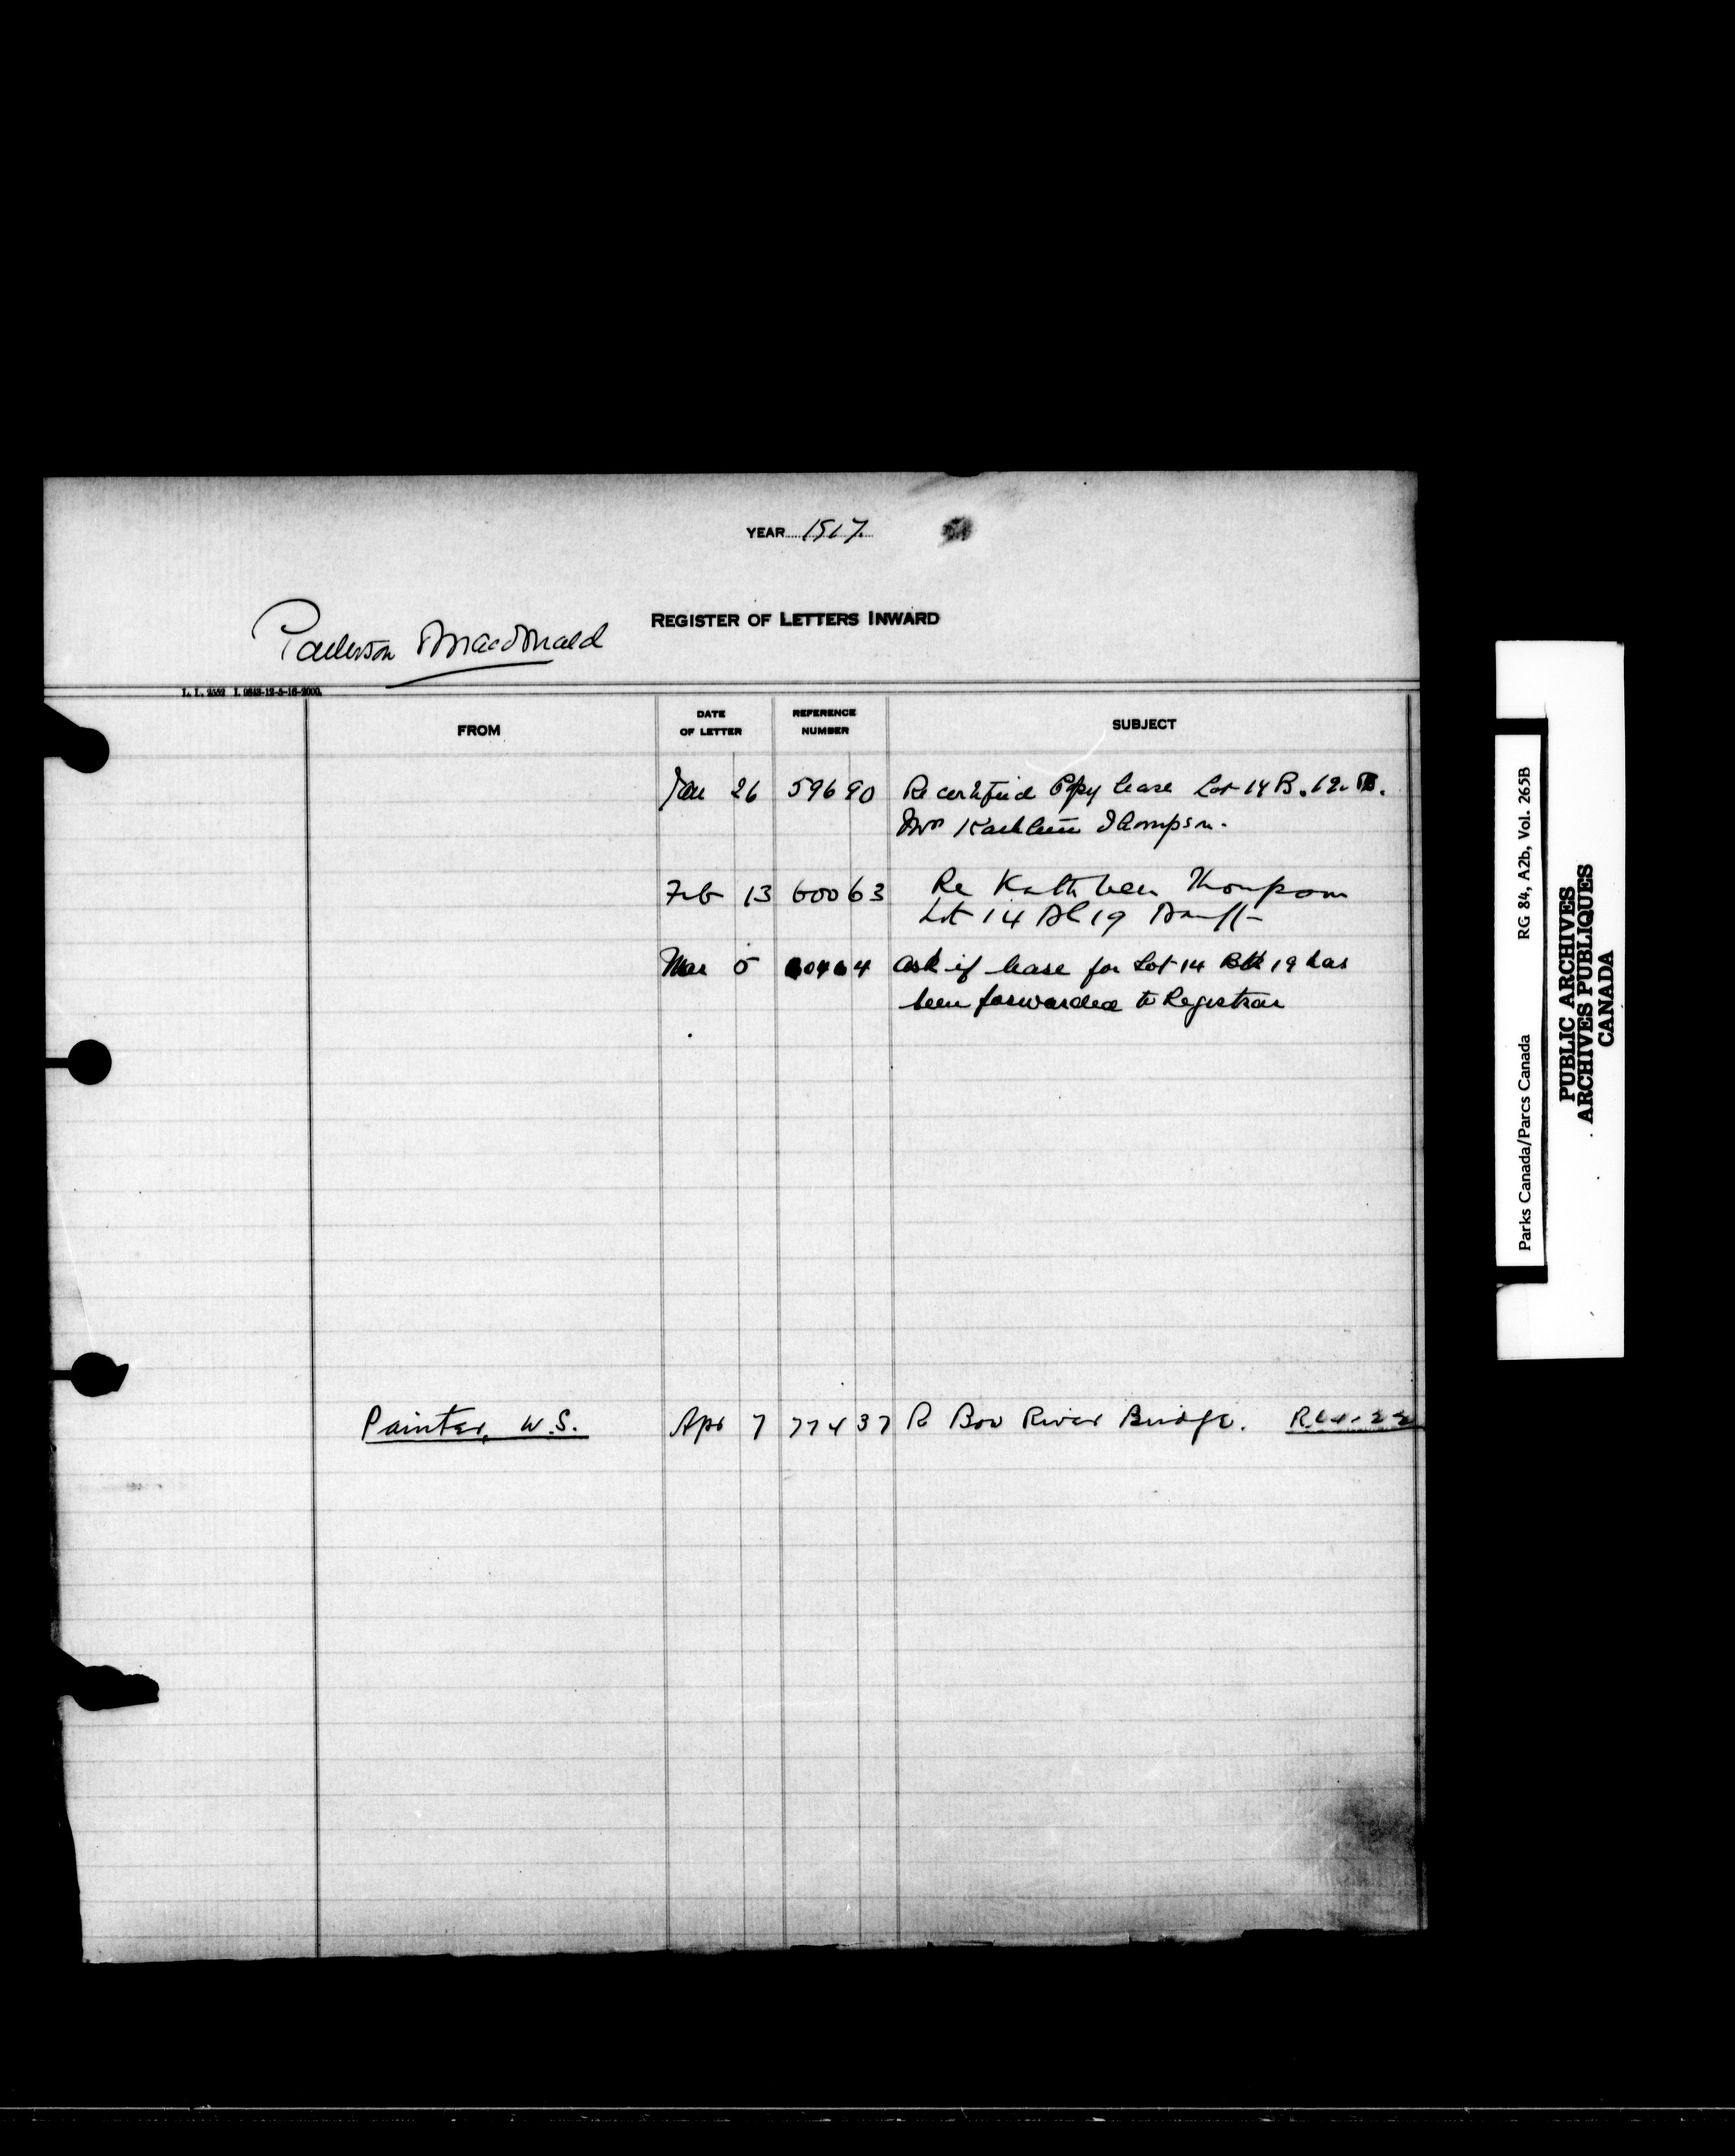 YEAR 1917.
REGISTER OF LETTERS INWARD
Paterson Macdonald
L. I. 2552 I. 9843-12-5-16-2000.
FROM DATE OF LETTER REFERENCE NUMBER SUBJECT
Jan 26 59690 Re certified Copy lease Lot 14 B. 19. B.
Mrs Kathleen Thompson.
Feb 13 60063 Re Kathleen Thompson
Lot 14 Bl 19 Banff
Mar 5 60464 Ask if lease for Lot 14 Bk 19 has
been forwarded to Registrar
Painter, W.S. Apr 7 77437 R Bow River Bridge.
Parks Canada/Parcs Canada RG 84, A2b, Vol. 265B
PUBLIC ARCHIVES
ARCHIVES PUBLIQUES
CANADA